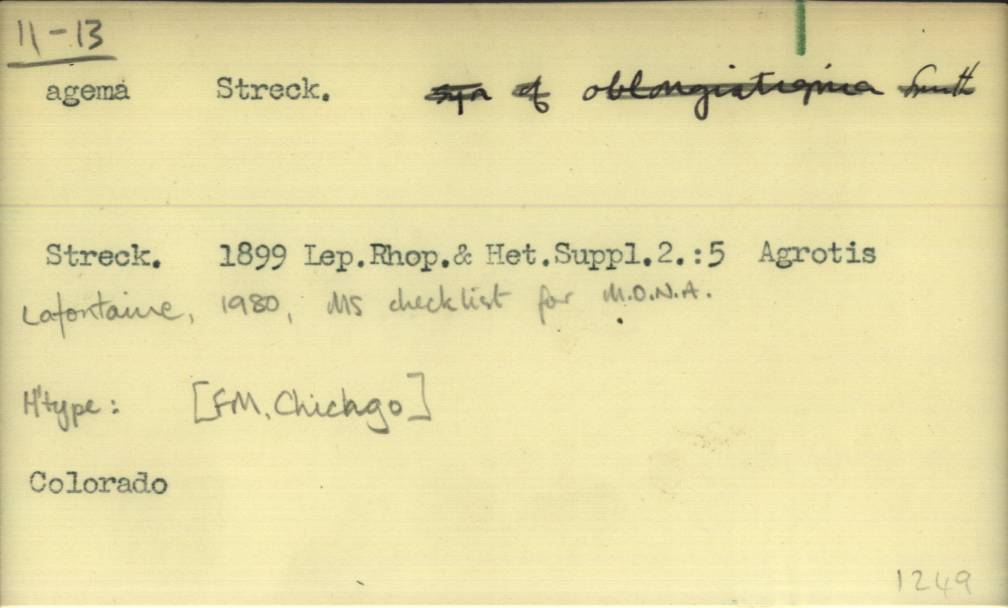 11-13
agema Streck. syn of oblongistigma Smith
Streck. 1899 Lep.Rhop.& Het.Suppl.2.:5 Agrotis
Lafontaine, 1980, MS checklist for M.O.N.A.
H'type: [FM, Chichgo]
Colorado
1249